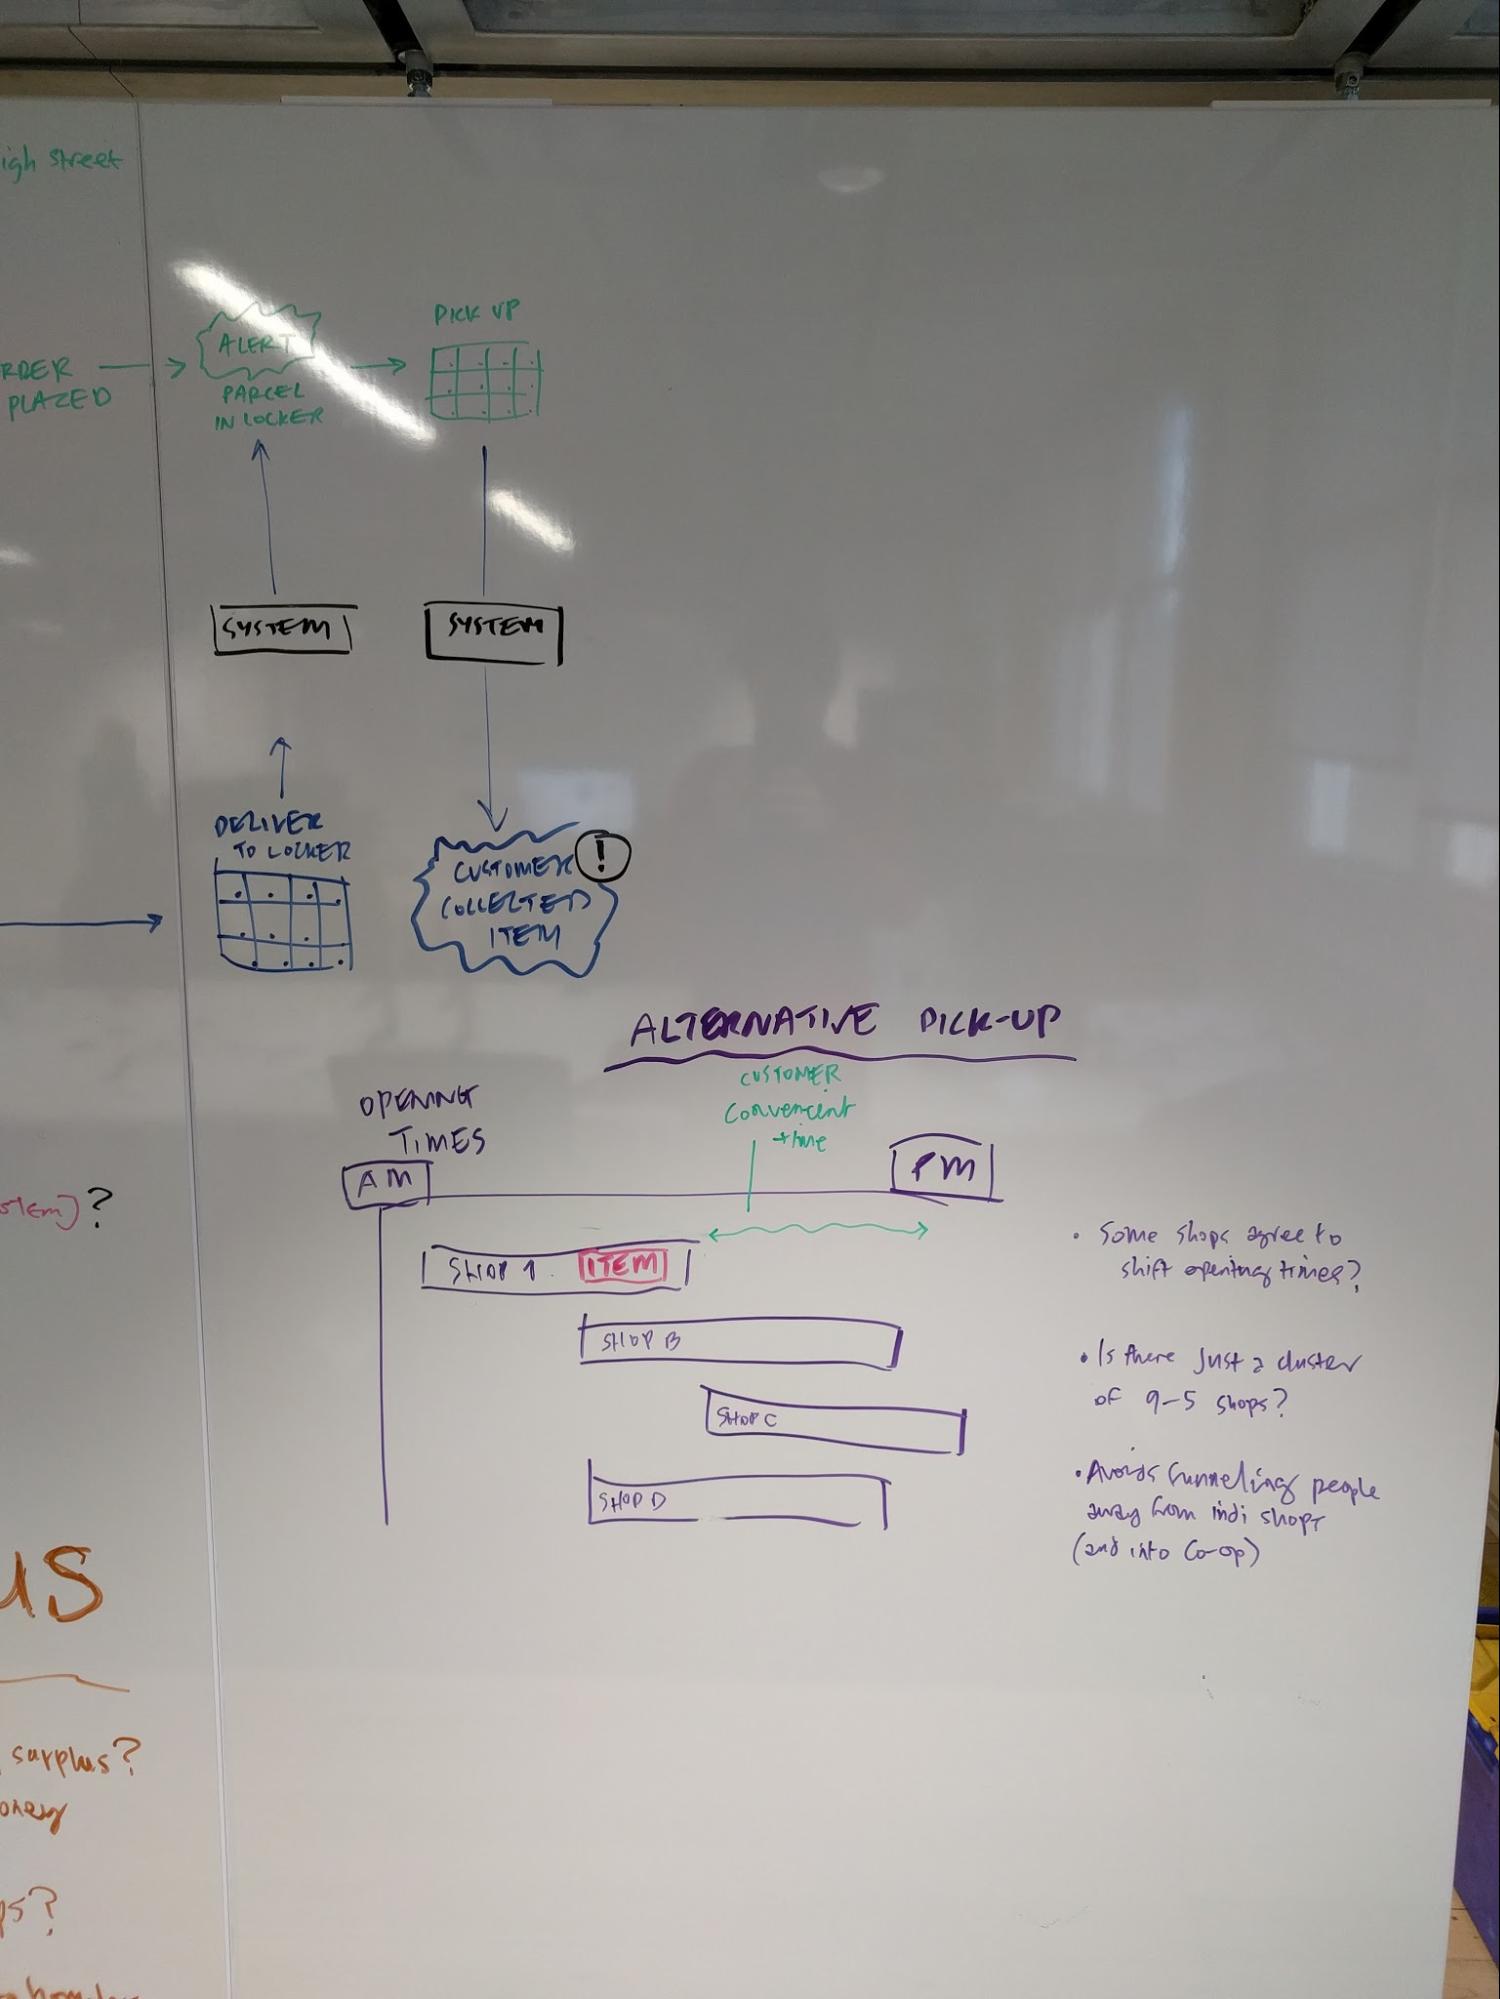 igh street
PICK UP
ALERT
RDER
PLAZED
PARCEL
IN LOCKER
SYSTEM
SYSTEM
DELIVER
TO LOCKER
CUSTOMER
COLLECTED
ITEM
!
ALTERNATIVE PICK-UP
CUSTOMER
Convencent
time
OPENING
TIMES
AM
PM
stem)?
SHOP 1. ITEM
SHOP B
SHOP C
SHOP D
• Some shops agree to
shift opening times?
• Is there just a cluster
of 9-5 shops?
• Avoids funneling people
away from indi shops
(and into Co-op)
us
surplus?
oney
ps?